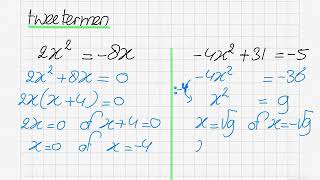 tweetermen
2x² = -8x
2x² + 8x = 0
2x(x+4) = 0
2x=0 of x+4=0
x=0 of x=-4
-4x² + 31 = -5
:-4
-4x² = -36
x² = 9
x=√9 of x=-√9